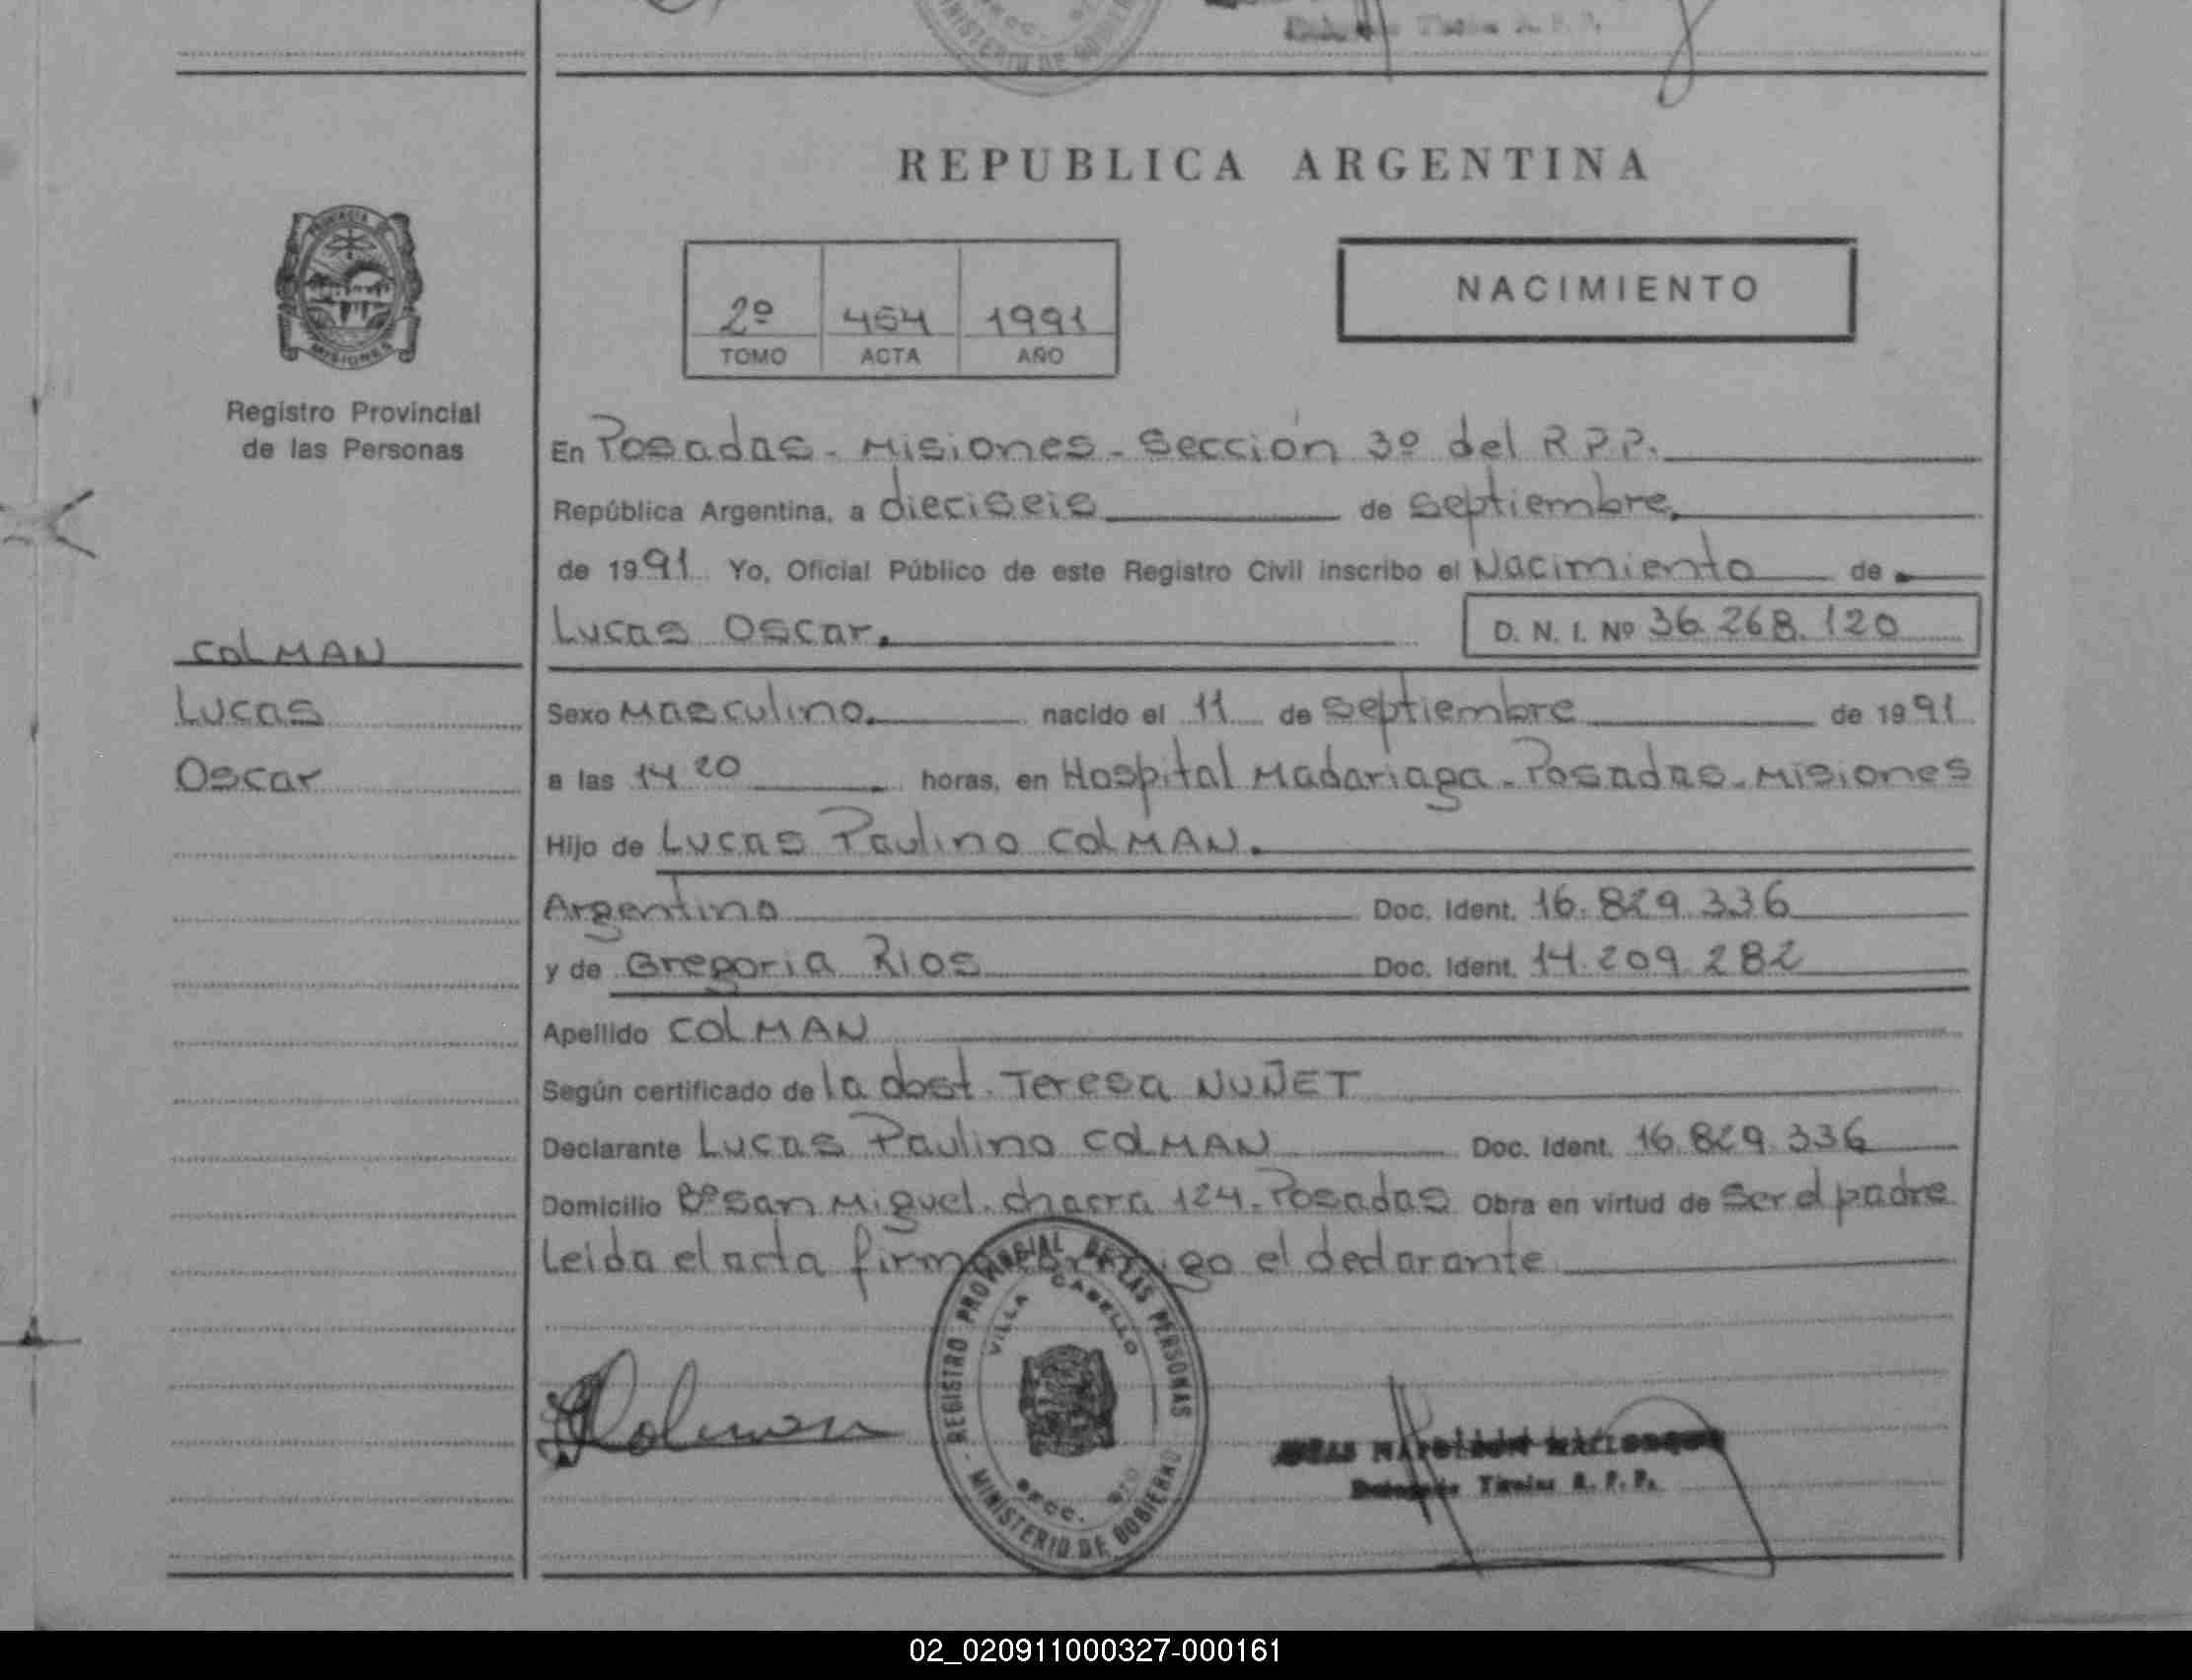 REPUBLICA ARGENTINA
PROVINCIA DE
MISIONES
Registro Provincial
de las Personas
COLMAN
Lucas
Oscar
2º 454 1991
TOMO ACTA AÑO
NACIMIENTO
En Posadas - Misiones - Sección 3º del R.P.P.
República Argentina, a dieciseis de septiembre
de 1991 Yo, Oficial Público de este Registro Civil inscribo el Nacimiento de
Lucas Oscar. D. N. I. Nº 36.268.120
Sexo Masculino. nacido el 11 de septiembre de 1991
a las 14 20 horas, en Hospital Madariaga - Posadas - Misiones
Hijo de Lucas Paulino COLMAN.
Argentino Doc. Ident. 16.829.336
y de Gregoria RIOS Doc. Ident. 14.209.282
Apellido COLMAN
Según certificado de la obst. Teresa NUÑET
Declarante Lucas Paulino COLMAN Doc. Ident. 16.829.336
Domicilio Bº San Miguel. chacra 124. Posadas Obra en virtud de ser el padre
Leida el acta firma conmigo el declarante
REGISTRO PROVINCIAL DE LAS PERSONAS
VILLA CABELLO
SECC.
- MINISTERIO DE GOBIERNO
Colman
Titular R. P. P.
02_020911000327-000161